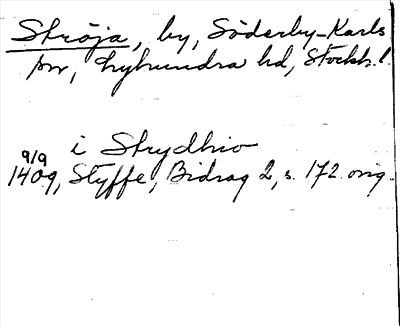 Ströja, by, Söderby-Karls
sn, Lyhundra hd, Stockh. l.
i Strydhio
9/9
1409, Styffe, Bidrag 2, s. 172. orig.